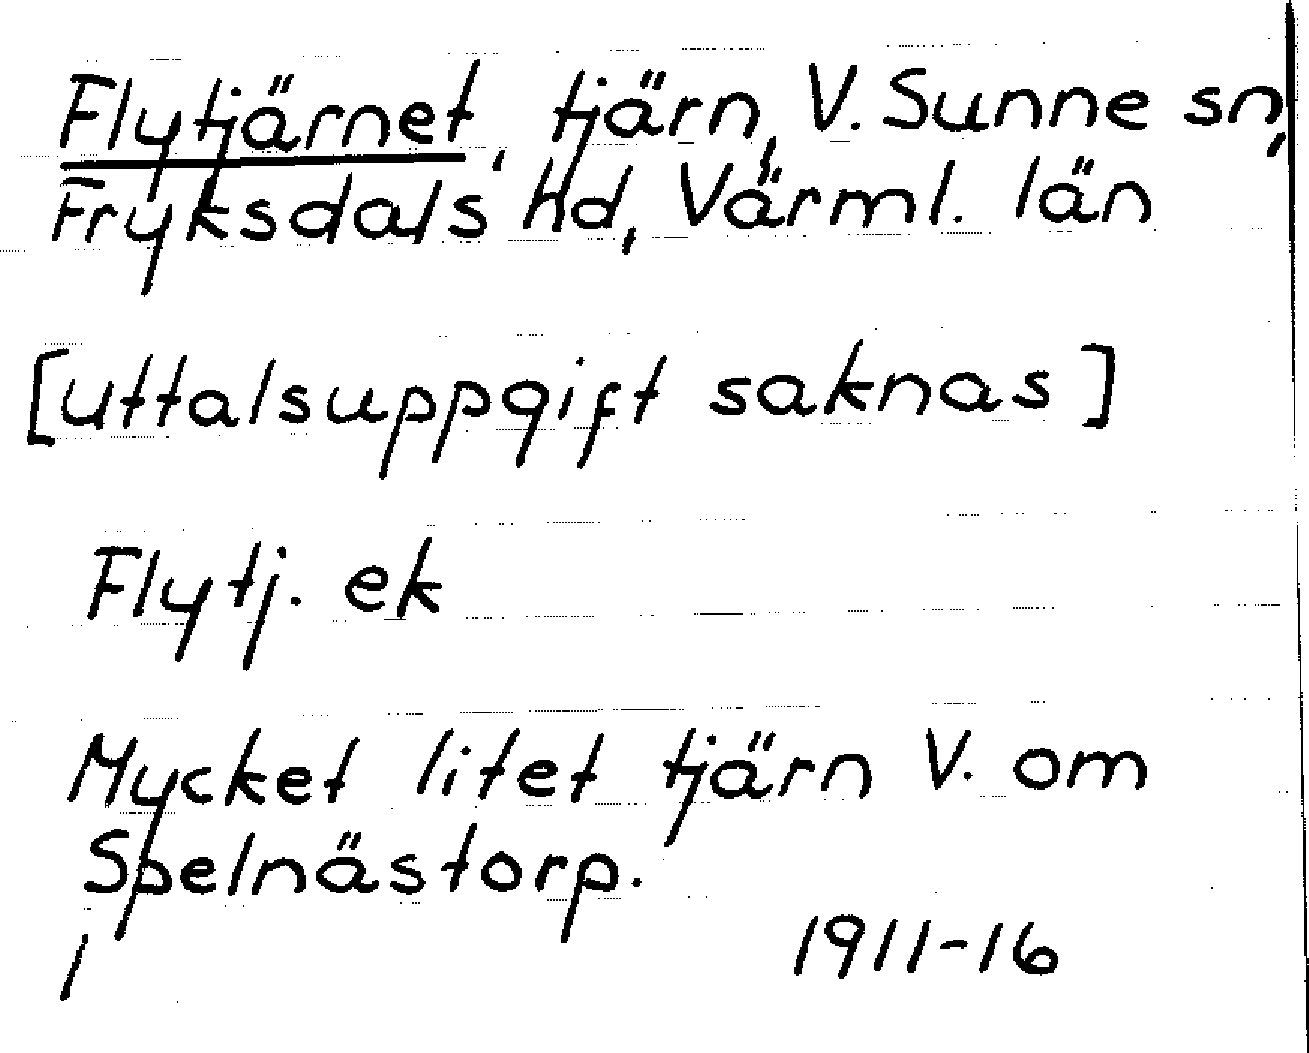 Flytjärnet, tjärn, V. Sunne sn,
Fryksdals hd, Värml. län
[uttalsuppgift saknas]
Flytj. ek
Mycket litet tjärn V. om
Spelnästorp.
1911-16